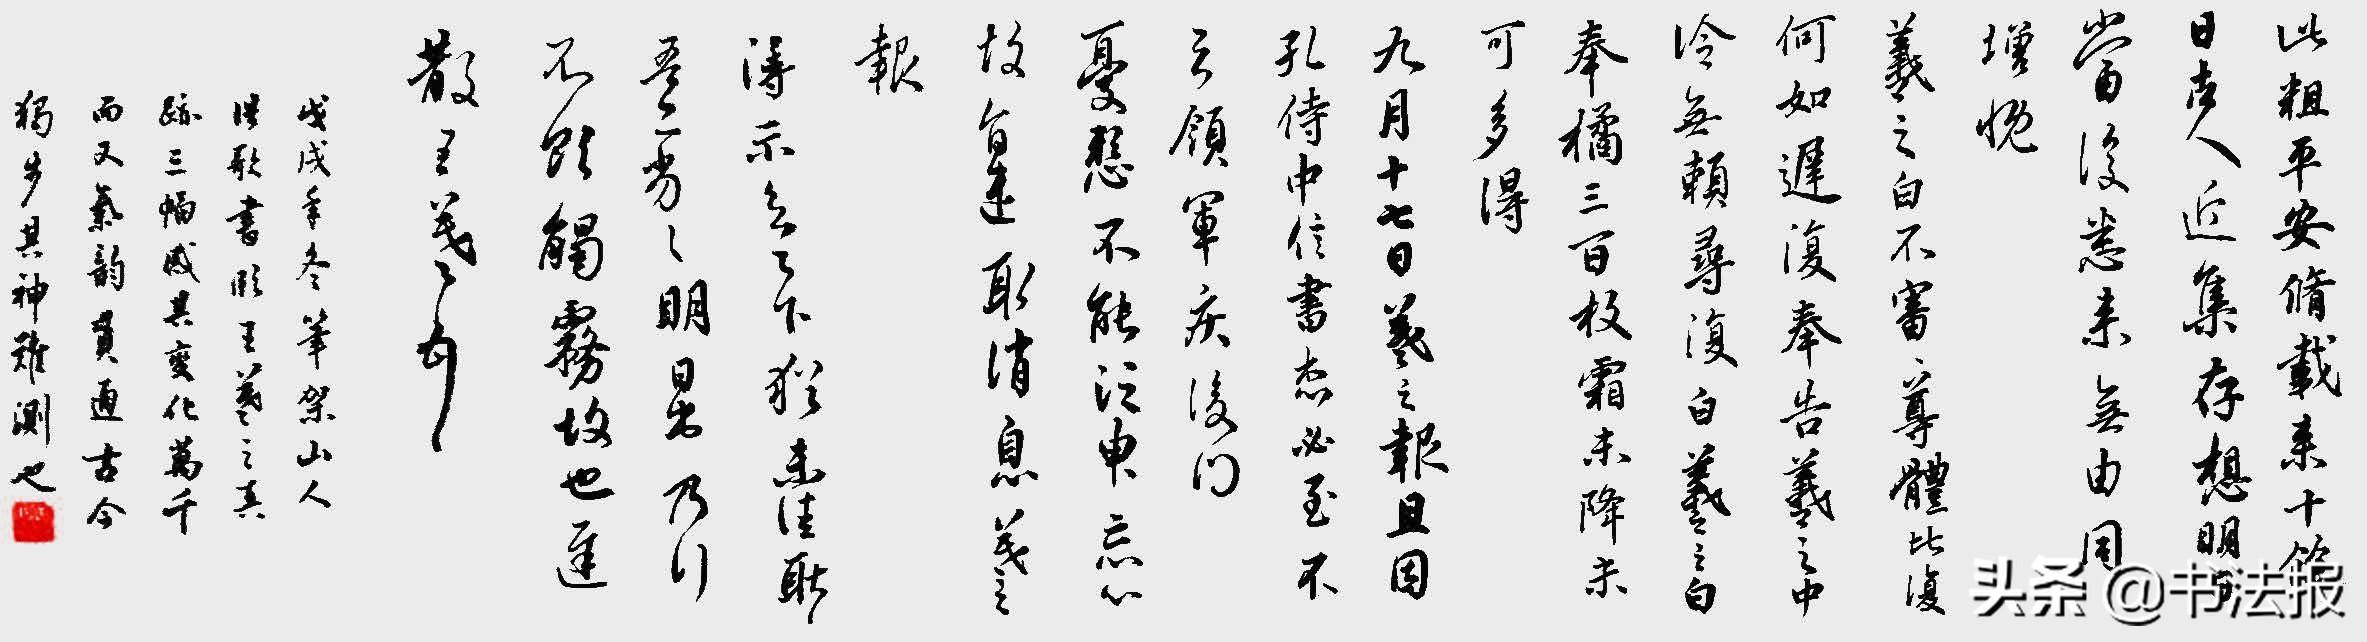 此粗平安脩載来十餘
日諸人近集存想明日
當復悉来無由同
增慨
羲之白不審尊體比復
何如遲復奉告羲之中
冷無賴尋復白羲之白
奉橘三百枚霜未降未
可多得
九月十七日羲之報且因
孔侍中信書想必至不
知領軍疾後問
憂懸不能須臾忘心
故旨遣取消息羲之
報
得示知足下猶未佳耿耿
吾亦劣劣明日出乃行
不欲觸霧故也遲
散王羲之頓首
戊戌年冬筆架山人
洪歌書臨王羲之真
跡三幅感其變化萬千
而又氣韵貫通古今
獨步其神難測也
头条 @书法报